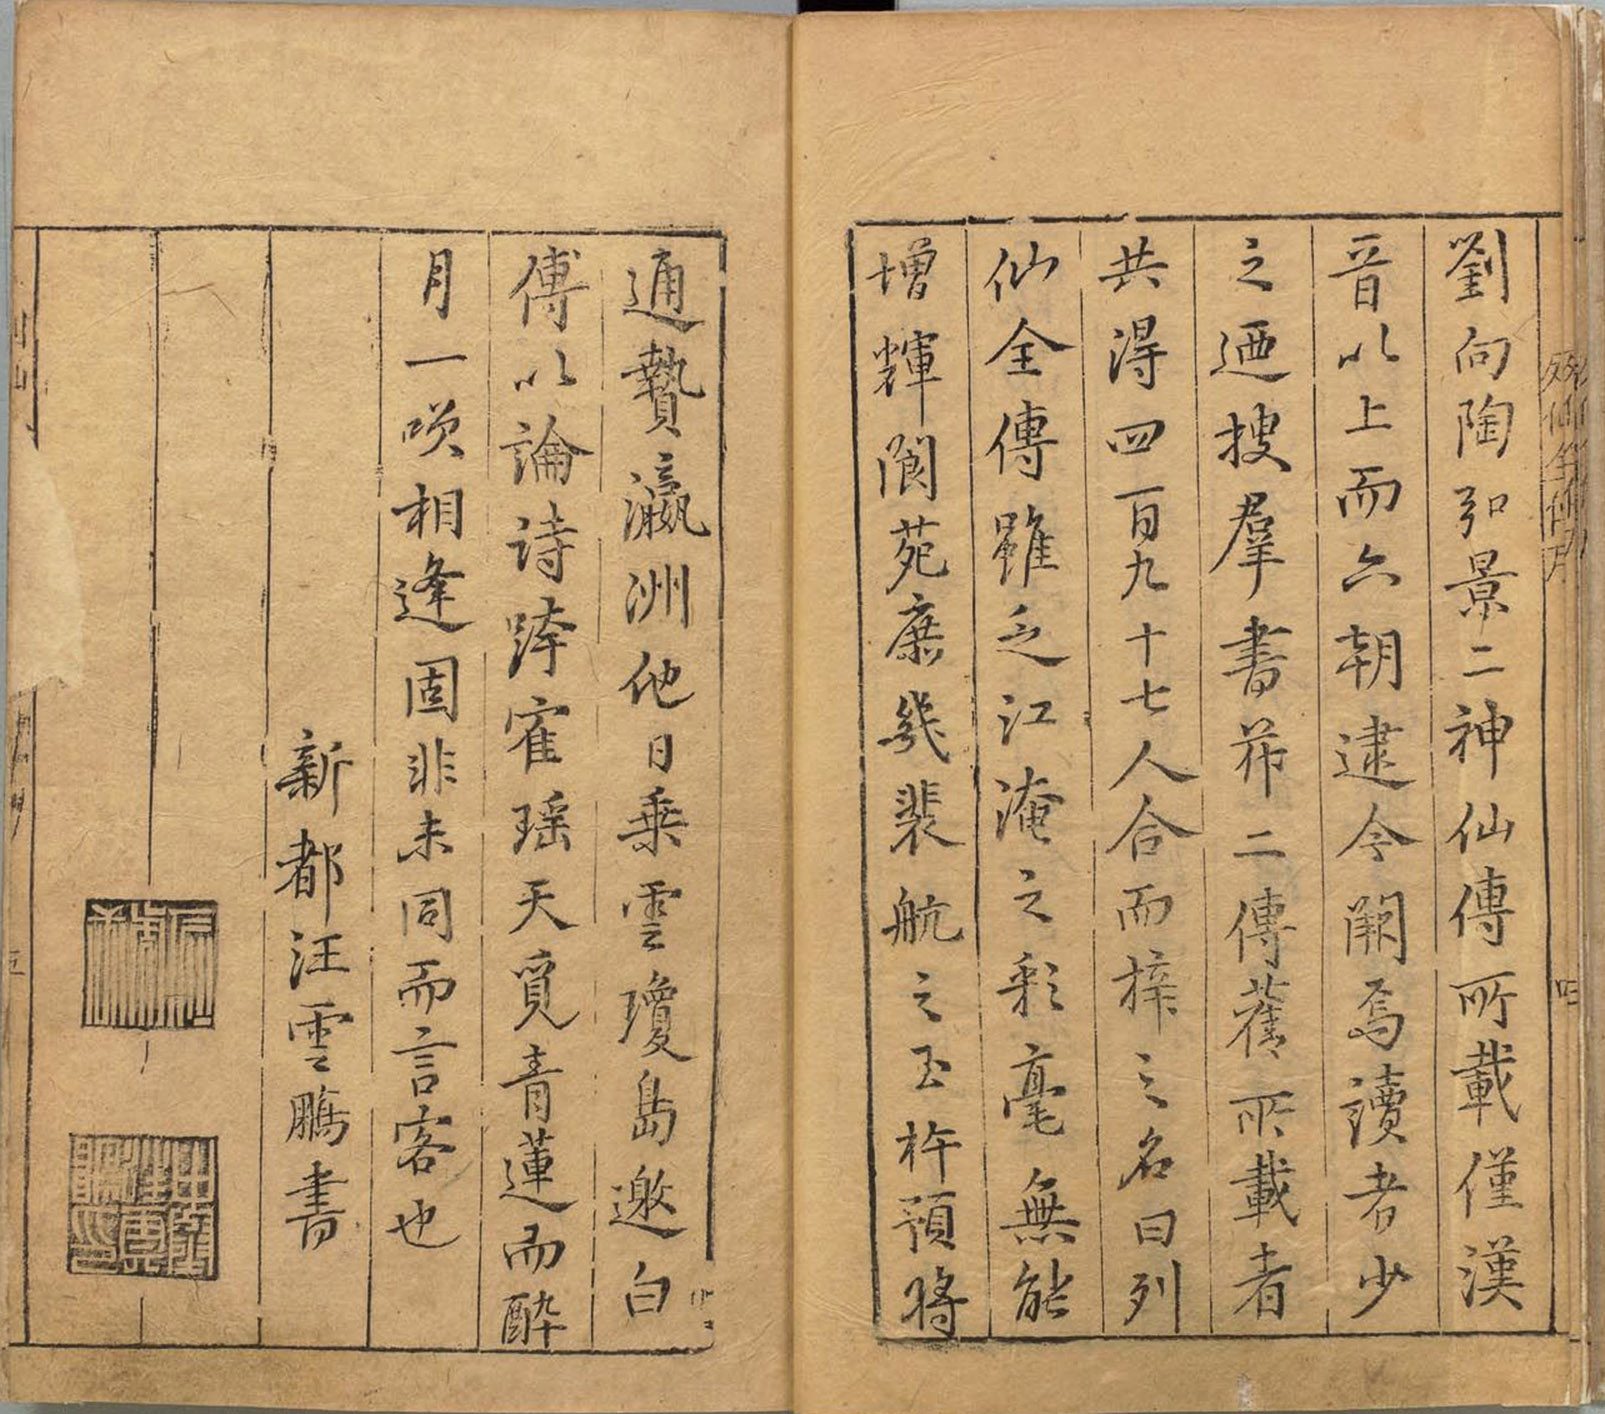 劉向陶弘景二神仙傳所載僅漢
晉以上而六朝逮今闕焉讀者少
之迺搜羣書茆二傳舊所載者
共淂四百九十七人合而梓之名曰列
仙全傳雖乏江淹之彩毫無能
增輝閬苑庶幾裴航之玉杵預將
通贄瀛洲他日乗雲瓊島邀白
傅以論詩跨寉瑶天覓青蓮而醉
月一咲相逢固非未同而言客也
新都汪雲鵬書